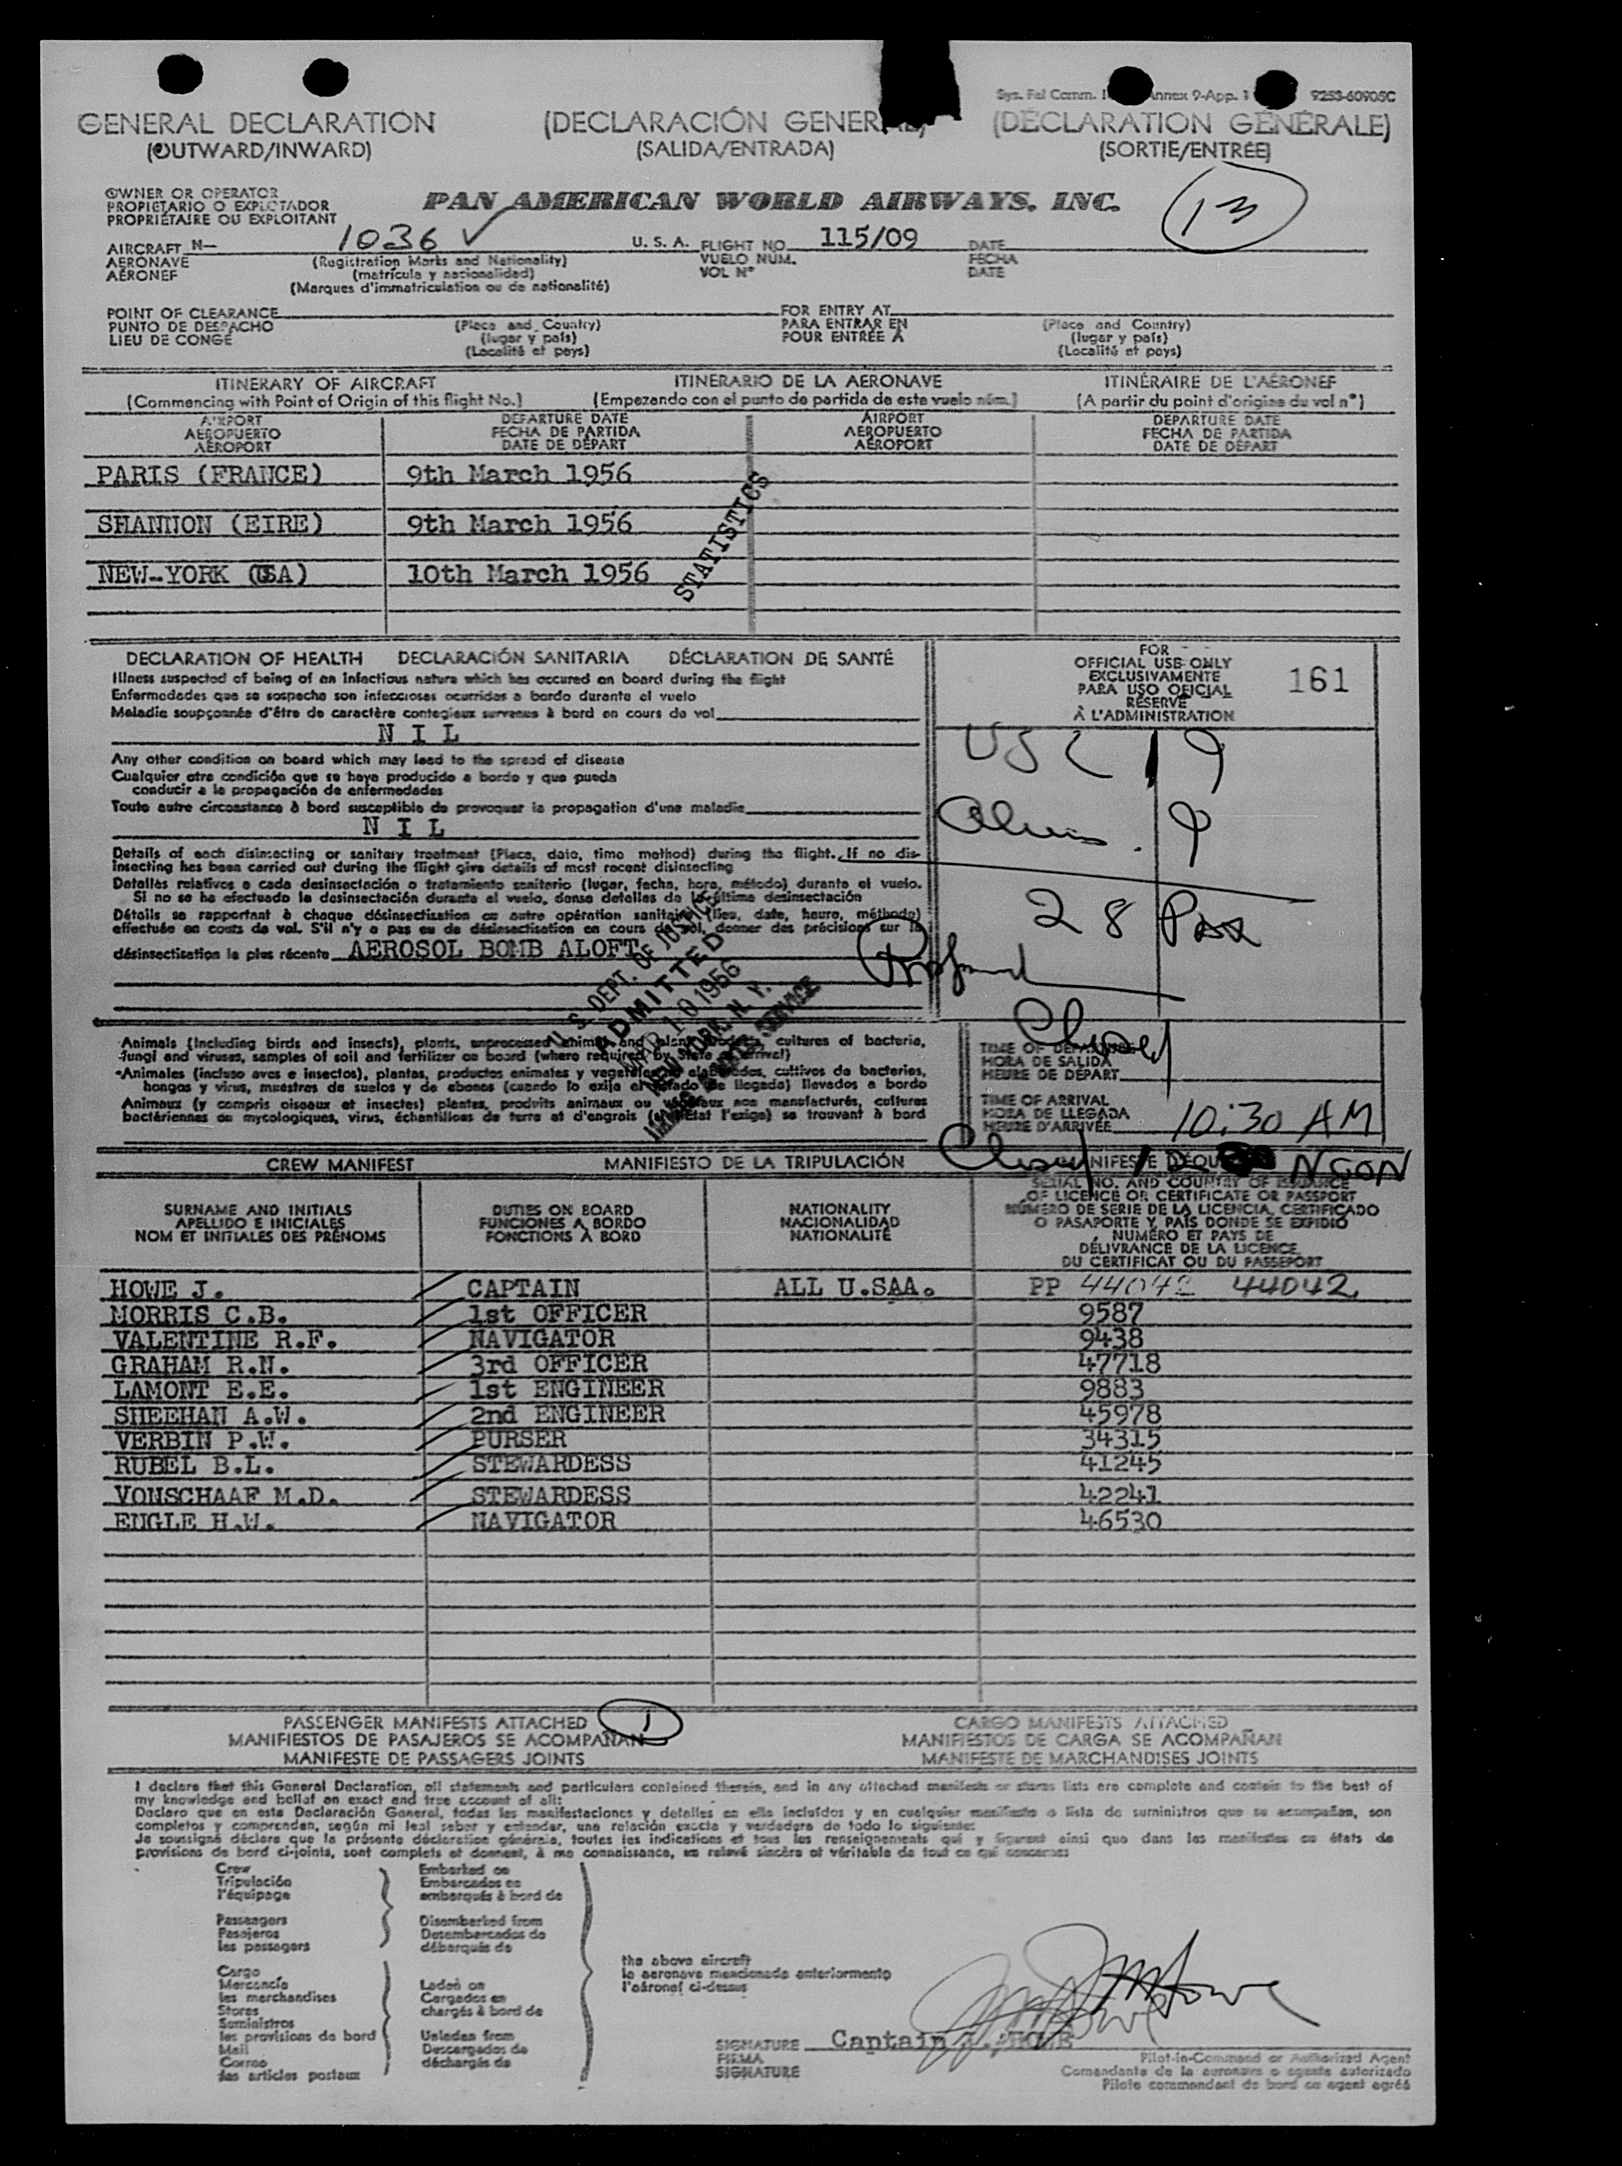 Sys. Fal Comm. Annex 9-App. 1 9253-60905C
GENERAL DECLARATION (DECLARACIÓN GENERAL) (DÉCLARATION GÉNÉRALE)
(OUTWARD/INWARD) (SALIDA/ENTRADA) (SORTIE/ENTRÉE)
13
OWNER OR OPERATOR
PROPIETARIO O EXPLOTADOR
PROPRIÉTAIRE OU EXPLOITANT
PAN AMERICAN WORLD AIRWAYS, INC.
AIRCRAFT N— 1036 ✓ U. S. A. FLIGHT NO. 115/09 DATE
AERONAVE (Registration Marks and Nationality) VUELO NÚM. FECHA
AÉRONEF (matrícula y nacionalidad) VOL N° DATE
(Marques d'immatriculation ou de nationalité)
POINT OF CLEARANCE FOR ENTRY AT
PUNTO DE DESPACHO (Place and Country) PARA ENTRAR EN (Place and Country)
LIEU DE CONGÉ (lugar y país) POUR ENTRÉE A (lugar y país)
(Localité et pays) (Localité et pays)
ITINERARY OF AIRCRAFT ITINERARIO DE LA AERONAVE ITINÉRAIRE DE L'AÉRONEF
(Commencing with Point of Origin of this flight No.) (Empezando con el punto de partida de este vuelo núm.) (A partir du point d'origine du vol n°)
AIRPORT DEPARTURE DATE AIRPORT DEPARTURE DATE
AEROPUERTO FECHA DE PARTIDA AEROPUERTO FECHA DE PARTIDA
AÉROPORT DATE DE DÉPART AÉROPORT DATE DE DÉPART
PARIS (FRANCE) 9th March 1956
SHANNON (EIRE) 9th March 1956
NEW-YORK (USA) 10th March 1956
STATISTICS
DECLARATION OF HEALTH DECLARACIÓN SANITARIA DÉCLARATION DE SANTÉ
Illness suspected of being of an infectious nature which has occured on board during the flight
Enfermedades que se sospecha son infecciosas ocurridas a bordo durante el vuelo
Maladie soupçonnée d'être de caractère contagieux survenus à bord en cours de vol
N I L
Any other condition on board which may lead to the spread of disease
Cualquier otra condición que se haya producido a bordo y que pueda
conducir a la propagación de enfermedades
Toute autre circonstance à bord susceptible de provoquer la propagation d'une maladie
N I L
Details of each disinsecting or sanitary treatment (Place, date, time method) during the flight. If no dis-
insecting has been carried out during the flight give details of most recent disinsecting
Detalles relativos a cada desinsectación o tratamiento sanitario (lugar, fecha, hora, método) durante el vuelo.
Si no se ha efectuado la desinsectación durante el vuelo, dense detalles de la última desinsectación
Détails se rapportant à chaque désinsectisation ou autre opération sanitaire (lieu, date, heure, méthode)
effectuée en cours de vol. S'il n'y a pas eu de désinsectisation en cours de vol, donner des précisions sur la
désinsectisation la plus récente AEROSOL BOMB ALOFT
FOR
OFFICIAL USE ONLY
EXCLUSIVAMENTE
PARA USO OFICIAL
RÉSERVÉ
À L'ADMINISTRATION
161
USC 19
Aliens. 9
28 Pax
U. S. DEPT. OF JUSTICE
ADMITTED
MAR 10 1956
NEW YORK, N. Y.
Animals (including birds and insects), plants, unprocessed animal and plant products, cultures of bacteria,
fungi and viruses, samples of soil and fertilizer on board (where required by State of arrival)
Animales (incluso aves e insectos), plantas, productos animales y vegetales no elaborados, cultivos de bacterias,
hongos y virus, muestras de suelos y de abonos (cuando lo exija el Estado de llegada) llevados a bordo
Animaux (y compris oiseaux et insectes) plantes, produits animaux ou végétaux non manufacturés, cultures
bactériennes ou mycologiques, virus, échantillons de terre et d'engrais (si l'État l'exige) se trouvant à bord
TIME OF DEPARTURE
HORA DE SALIDA
HEURE DE DÉPART
TIME OF ARRIVAL
HORA DE LLEGADA
HEURE D'ARRIVÉE 10:30 AM
CREW MANIFEST MANIFIESTO DE LA TRIPULACIÓN
SURNAME AND INITIALS DUTIES ON BOARD NATIONALITY SERIAL NO. AND COUNTRY OF ISSUANCE
APELLIDO E INICIALES FUNCIONES A BORDO NACIONALIDAD OF LICENCE OR CERTIFICATE OR PASSPORT
NOM ET INITIALES DES PRÉNOMS FONCTIONS À BORD NATIONALITÉ NÚMERO DE SERIE DE LA LICENCIA, CERTIFICADO
O PASAPORTE Y PAÍS DONDE SE EXPIDIÓ
NUMÉRO ET PAYS DE
DÉLIVRANCE DE LA LICENCE,
DU CERTIFICAT OU DU PASSEPORT
HOWE J. CAPTAIN ALL U.SAA. PP 44042 44042
MORRIS C.B. 1st OFFICER 9587
VALENTINE R.F. NAVIGATOR 9438
GRAHAM R.N. 3rd OFFICER 47718
LAMONT E.E. 1st ENGINEER 9883
SHEEHAN A.W. 2nd ENGINEER 45978
VERBIN P.W. PURSER 34315
RUBEL B.L. STEWARDESS 41245
VONSCHAAF M.D. STEWARDESS 42241
ENGLE H.W. NAVIGATOR 46530
PASSENGER MANIFESTS ATTACHED 1 CARGO MANIFESTS ATTACHED
MANIFIESTOS DE PASAJEROS SE ACOMPAÑAN MANIFIESTOS DE CARGA SE ACOMPAÑAN
MANIFESTE DE PASSAGERS JOINTS MANIFESTE DE MARCHANDISES JOINTS
I declare that this General Declaration, all statements and particulars contained therein, and in any attached manifests or stores lists are complete and contain to the best of
my knowledge and belief an exact and true account of all:
Declaro que en esta Declaración General, todas las manifestaciones y detalles en ella incluídos y en cualquier manifiesto o lista de suministros que se acompañan, son
completos y comprenden, según mi leal saber y entender, una relación exacta y verdadera de todo lo siguiente:
Je soussigné déclare que la présente déclaration générale, toutes les indications et tous les renseignements qui y figurent ainsi que dans les manifestes ou états de
provisions de bord ci-joints, sont complets et donnent, à ma connaissance, un relevé sincère et véritable de tout ce qui concerne:
Crew Embarked on
Tripulación Embarcados en
l'équipage embarqués à bord de
Passengers Disembarked from
Pasajeros Desembarcados de
les passagers débarqués de
the above aircraft
la aeronave mencionada anteriormente
l'aéronef ci-dessus
Cargo
Mercancía Laden on
les marchandises Cargados en
Stores chargés à bord de
Suministros
les provisions de bord Unladen from
Mail Descargados de
Correo déchargés de
les articles postaux
SIGNATURE Captain J. HOWE
FIRMA
SIGNATURE
Pilot-in-Command or Authorized Agent
Comandante de la aeronave o agente autorizado
Pilote commandant de bord ou agent agréé